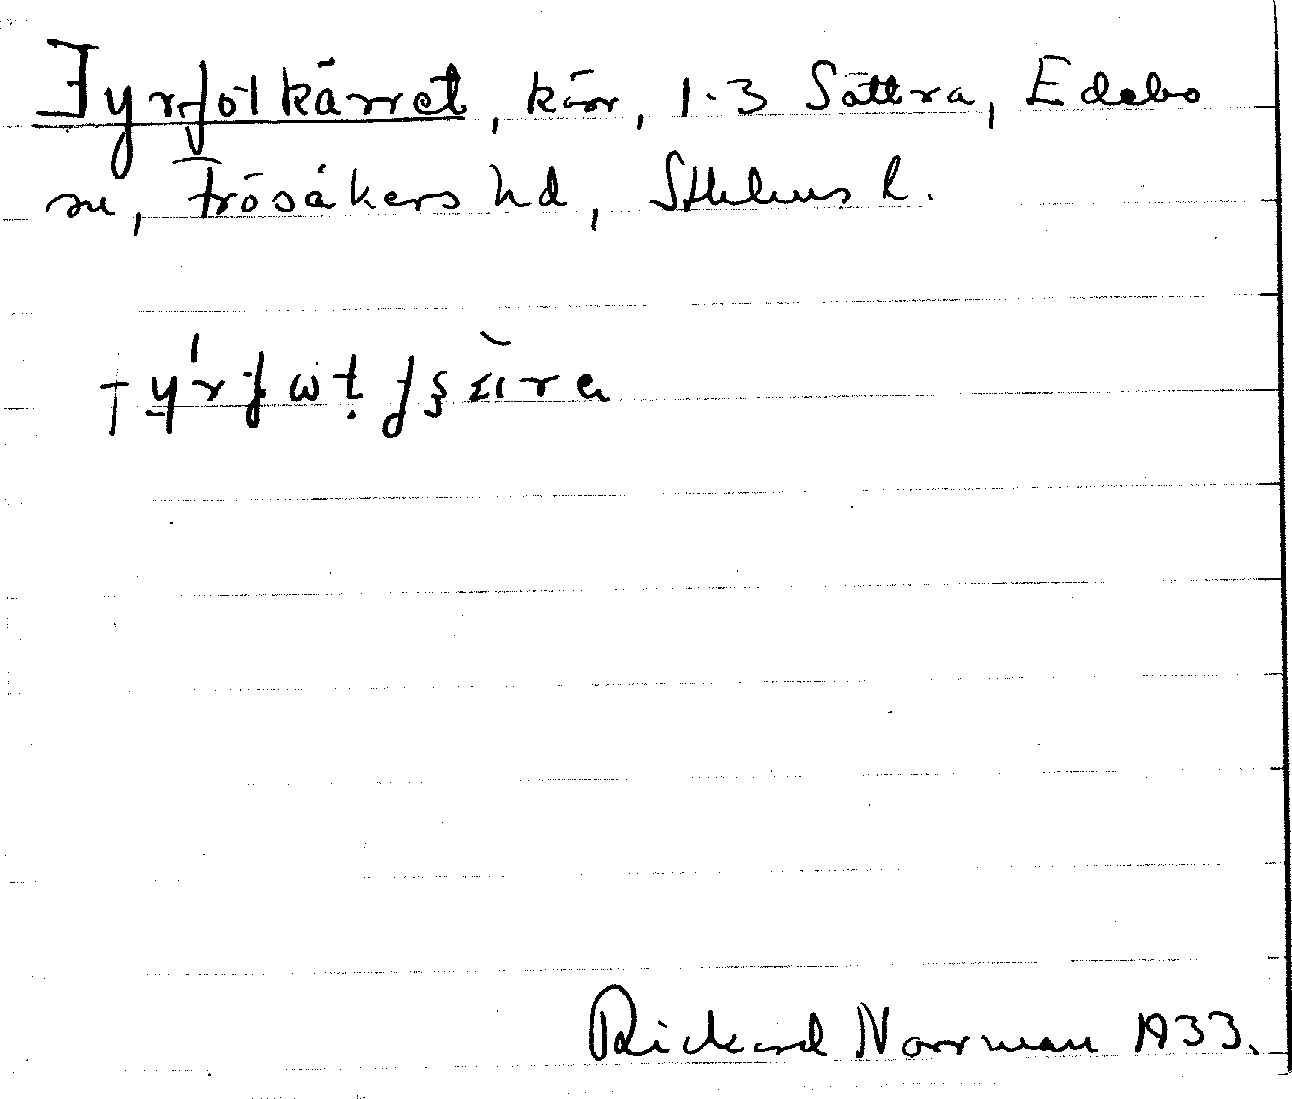 Fyrfotkärret, kärr, 1-3 Sättra, Edebo
sn, Frösåkers hd, Sthlms l.
Rickard Norrman 1933.